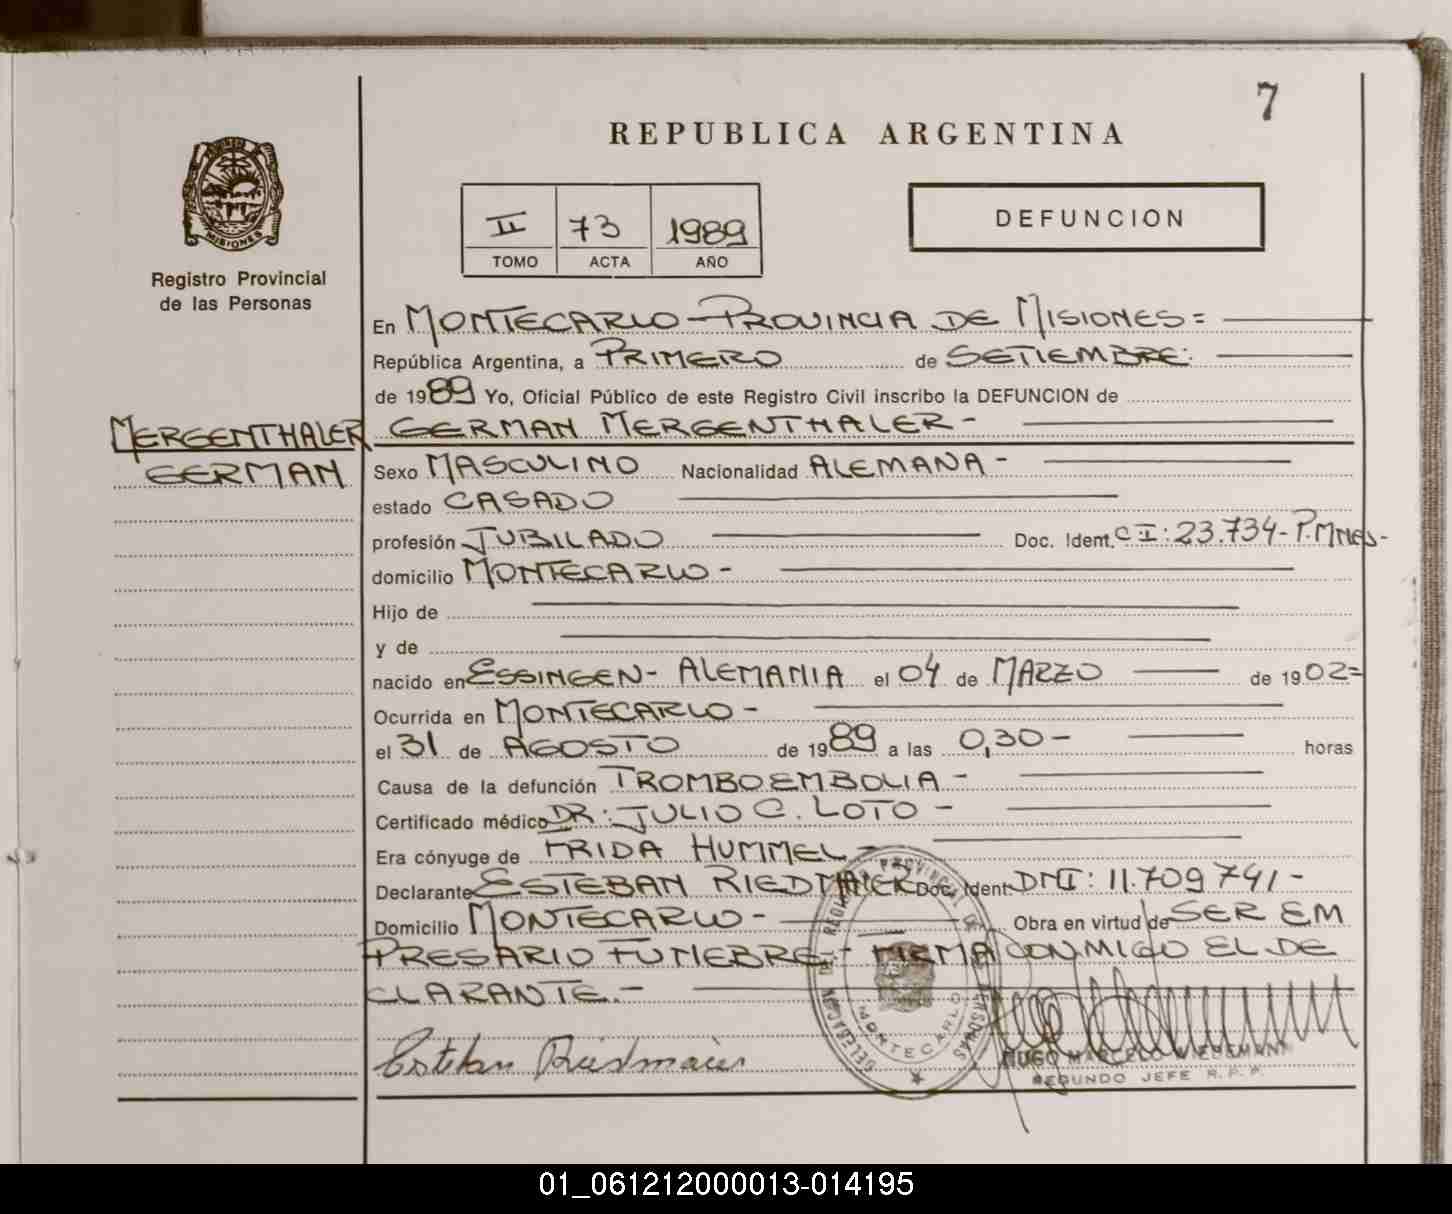 7
REPUBLICA ARGENTINA
MISIONES
Registro Provincial
de las Personas
II 73 1989
TOMO ACTA AÑO
DEFUNCION
En MONTECARLO - PROVINCIA DE MISIONES =
República Argentina, a PRIMERO de SETIEMBRE:
de 1989 Yo, Oficial Público de este Registro Civil inscribo la DEFUNCION de
MERGENTHALER
GERMAN
GERMAN MERGENTHALER -
Sexo MASCULINO Nacionalidad ALEMANA -
estado CASADO
profesión JUBILADO Doc. Ident. C I: 23.734 - P. Mnes -
domicilio MONTECARLO -
Hijo de
y de
nacido en ESSINGEN - ALEMANIA el 04 de MARZO de 1902 =
Ocurrida en MONTECARLO -
el 31 de AGOSTO de 1989 a las 0,30 - horas
Causa de la defunción TROMBOEMBOLIA -
Certificado médico DR: JULIO C. LOTO -
Era cónyuge de FRIDA HUMMEL -
Declarante ESTEBAN RIEDMAIER Doc. Ident: DNI: 11.709741 -
Domicilio MONTECARLO - Obra en virtud de SER EM
PRESARIO FUNEBRE. - FIRMA CONMIGO EL DE
CLARANTE. -
Esteban Riedmaier
DELEGACION DEL REGISTRO PROVINCIAL DE LAS PERSONAS
MONTECARLO
HUGO MARCELO WIEDEMANN
SEGUNDO JEFE R. P. P.
01_061212000013-014195